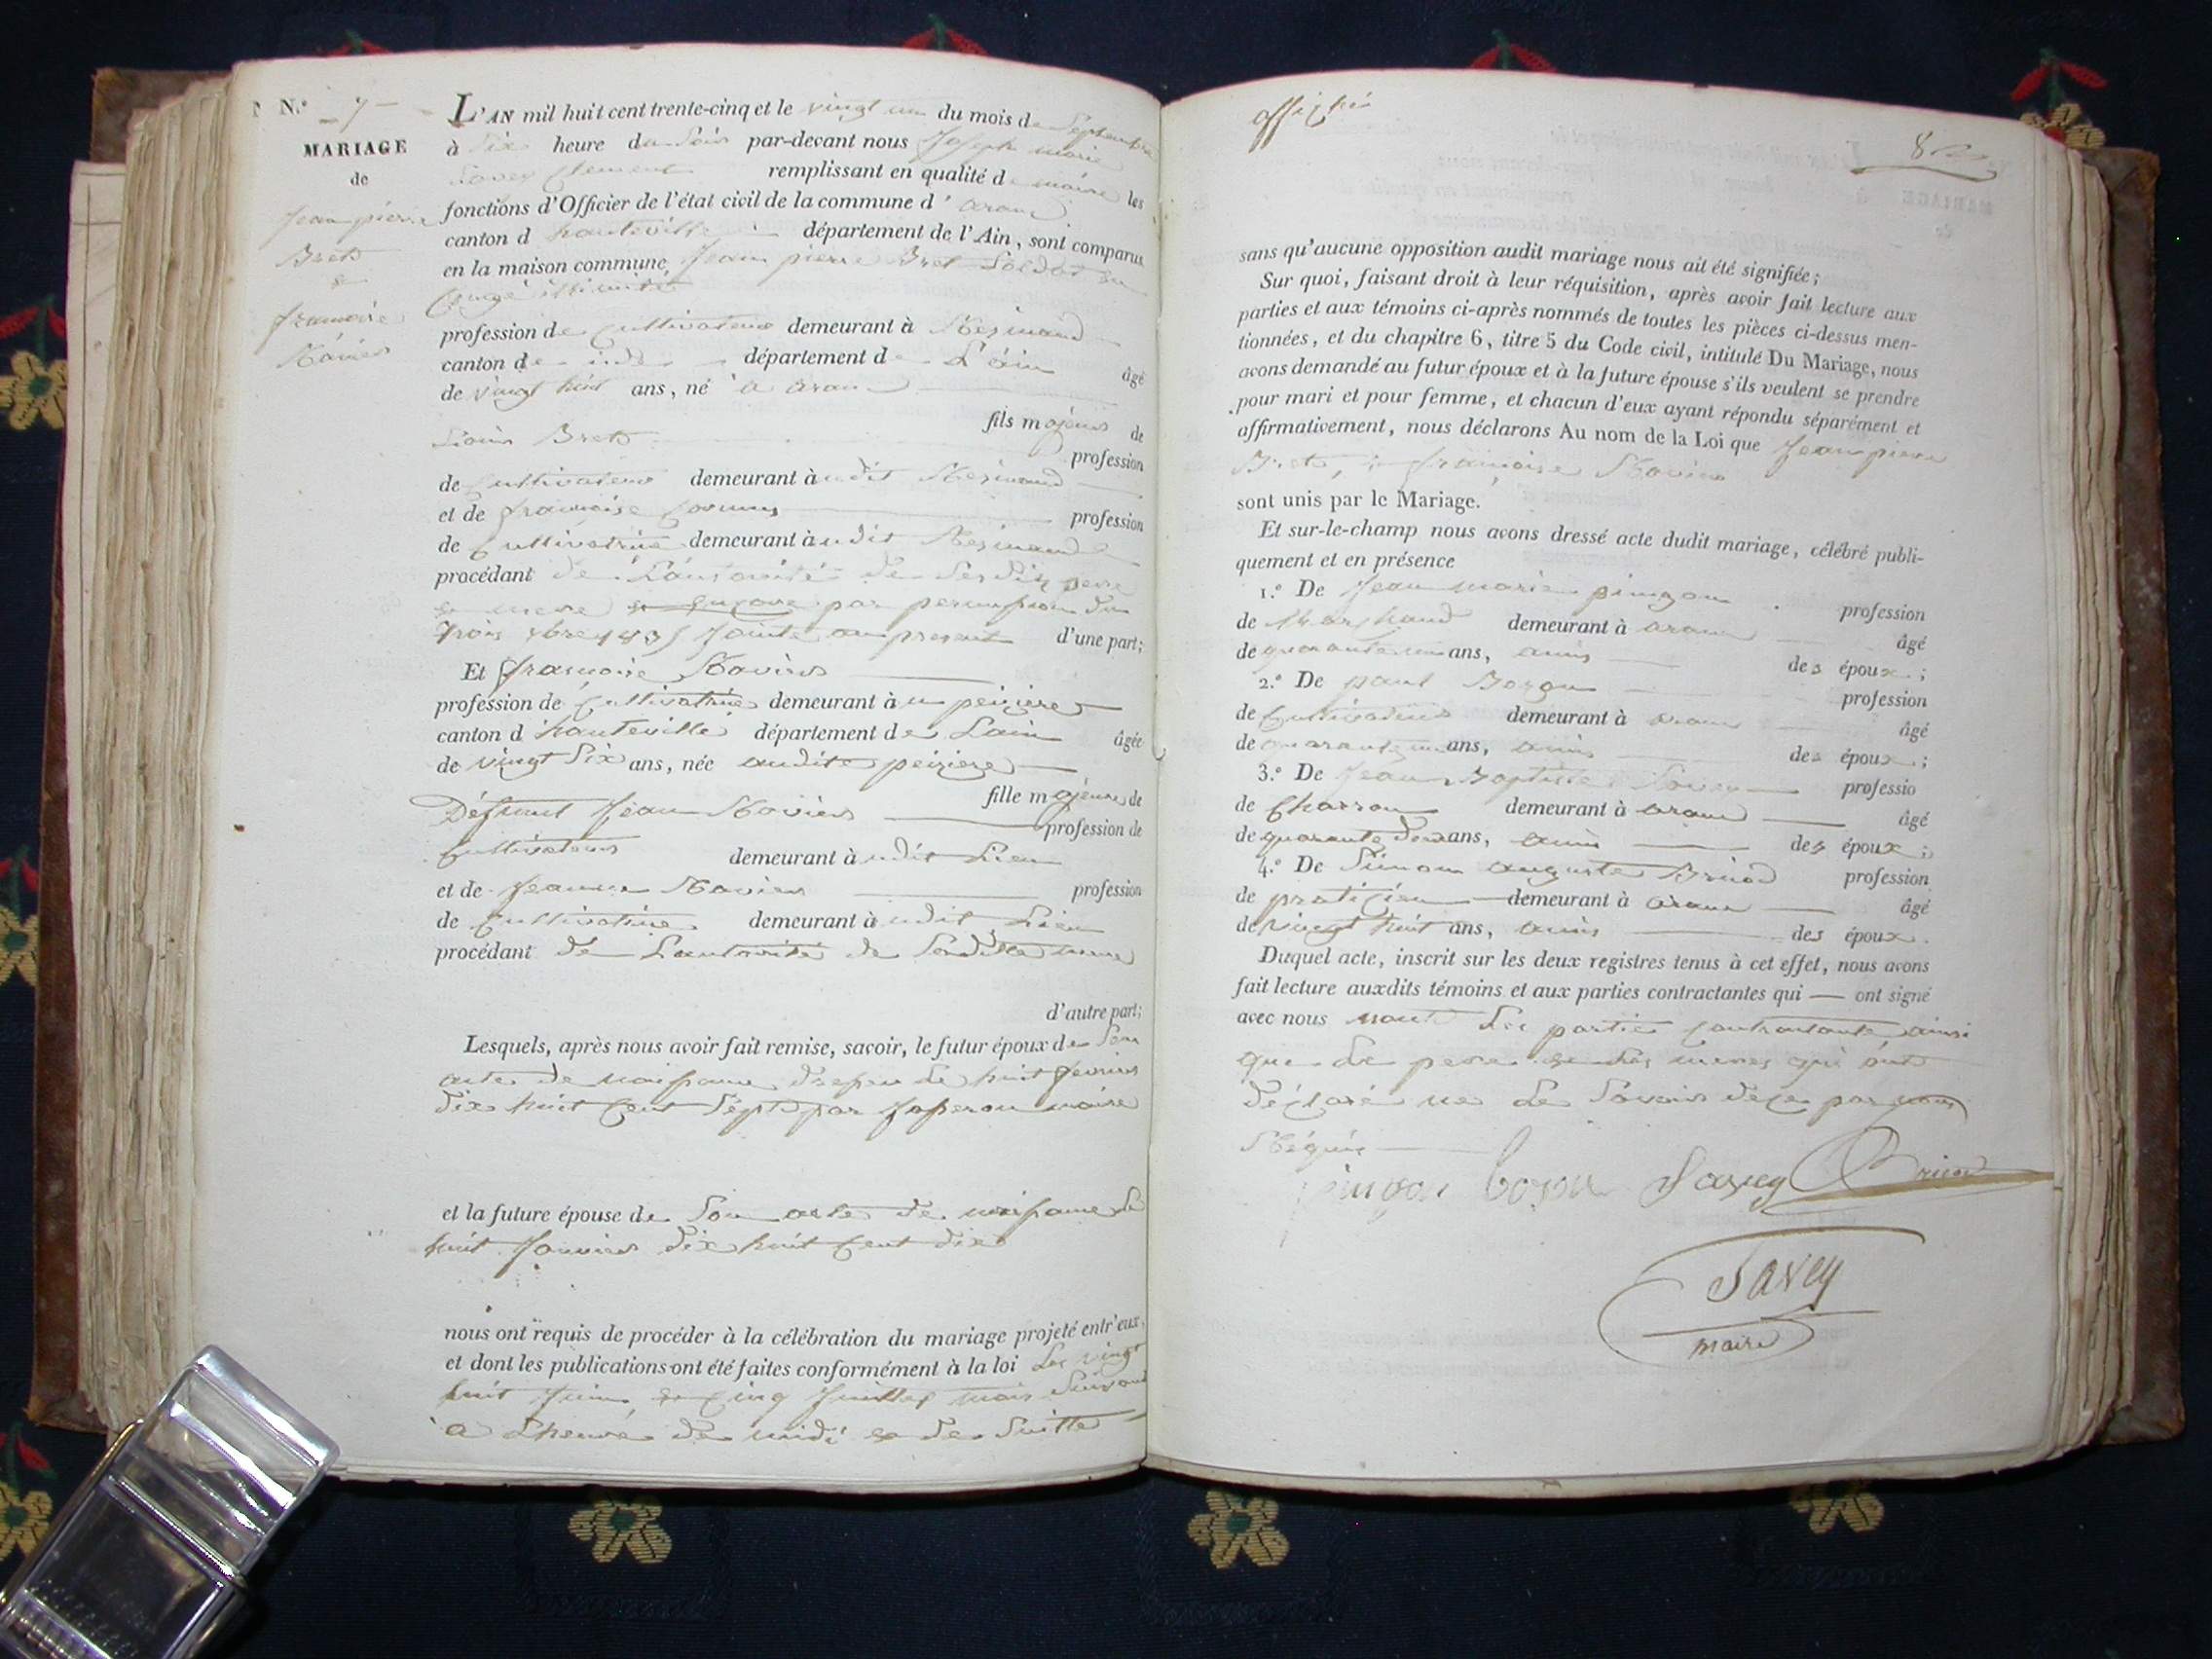 N.º 7
MARIAGE
de
Jean pierre
Bret
&
françoise
L'AN mil huit cent trente-cinq et le vingt un du mois de Septembre
à Six heure du Soir par-devant nous Joseph marie
Savey Clement remplissant en qualité de maire les
fonctions d'Officier de l'état civil de la commune d' aranc
canton d hauteville département de l'Ain, sont comparus
en la maison commune, Jean pierre Bret Soldat en
Congé illimité
profession de Cultivateur demeurant à
canton de département de L'ain âgé
de vingt huit ans, né à aranc
fils majeur de
Bret profession
de Cultivateur demeurant àudit
et de françoise profession
de Cultivatrice demeurant àudit
procédant de L'autorité de Ses dits pere
& mere par permission du
Trois 1835 Jointe au present d'une part;
Et françoise
profession de Cultivatrice demeurant à
canton d hauteville département de Lain âgée
de vingt Six ans, née audite
fille majeure de
Défunt Jean profession de
Cultivateur demeurant àudit Lieu
et de Jeanne profession
de Cultivatrice demeurant àudit Lieu
procédant de Lautorité de Sendite mere
d'autre part;
Lesquels, après nous avoir fait remise, savoir, le futur époux de Son
acte de naissance Le huit fevrier
dix huit Cent Sept par maire
et la future épouse de Son acte de naissance Le
huit Janvier dix huit Cent dix
nous ont requis de procéder à la célébration du mariage projeté entr'eux,
et dont les publications ont été faites conformément à la loi Les vingt
huit Juin, & Cinq Juillet mois Suivant
à Lheure de midi & de Suitte
affiché
sans qu'aucune opposition audit mariage nous ait été signifiée;
Sur quoi, faisant droit à leur réquisition, après avoir fait lecture aux
parties et aux témoins ci-après nommés de toutes les pièces ci-dessus men-
tionnées, et du chapitre 6, titre 5 du Code civil, intitulé Du Mariage, nous
avons demandé au futur époux et à la future épouse s'ils veulent se prendre
pour mari et pour femme, et chacun d'eux ayant répondu séparément et
affirmativement, nous déclarons Au nom de la Loi que Jean pierre
Bret, & françoise
sont unis par le Mariage.
Et sur-le-champ nous avons dressé acte dudit mariage, célébré publi-
quement et en présence
1.º De Jean marie pingon profession
de Marchand demeurant à aranc âgé
de quarante un ans, amis des époux;
2.º De paul Bozon profession
de Cultivateur demeurant à aranc âgé
de ans, amis des époux;
3.º De Jean Baptiste Savey professio
de Charron demeurant à aranc âgé
de quarante deux ans, amis des époux;
4.º De Simon auguste Briod profession
de praticien demeurant à aranc âgé
de vingt huit ans, amis des époux.
Duquel acte, inscrit sur les deux registres tenus à cet effet, nous avons
fait lecture auxdits témoins et aux parties contractantes qui — ont signé
avec nous non Les parties Contractante ainsi
que Le pere & Les meres qui ont
déclaré ne Le Savoir de ce par nous
Réquis
pingon bozon Savey Briod
Savey
maire